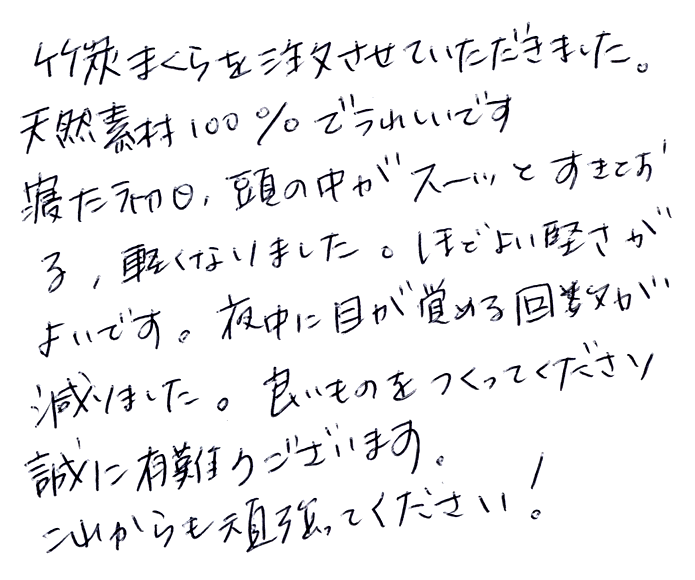 竹炭まくらを注文させていただきました。
天然素材100%でうれしいです
寝た初日、頭の中がスーッとすきとお
る、軽くなりました。ほどよい堅さが
よいです。夜中に目が覚める回数が
減りました。良いものをつくってくださり
誠に有難うございます。
これからも頑張ってください!